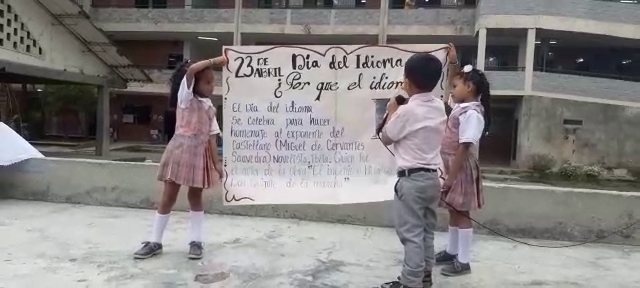 23 DE ABRIL Día del Idioma
¿Por que el idiom
El Día del idioma
Se celebra para hacer
homenaje al exponente del
Castellano (Miguel de Cervantes
Saavedra) Novelista, Quien fue
el autor de la obra "El ingenioso
de la mancha"